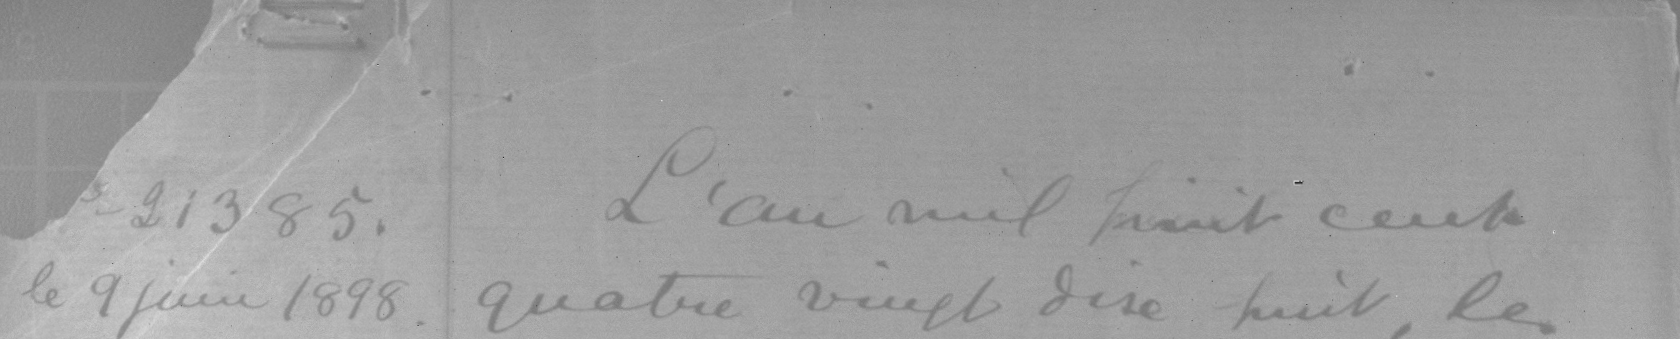 21385.
le 9 juin 1898.
L'an mil huit cent
quatre vingt dixe huit, le